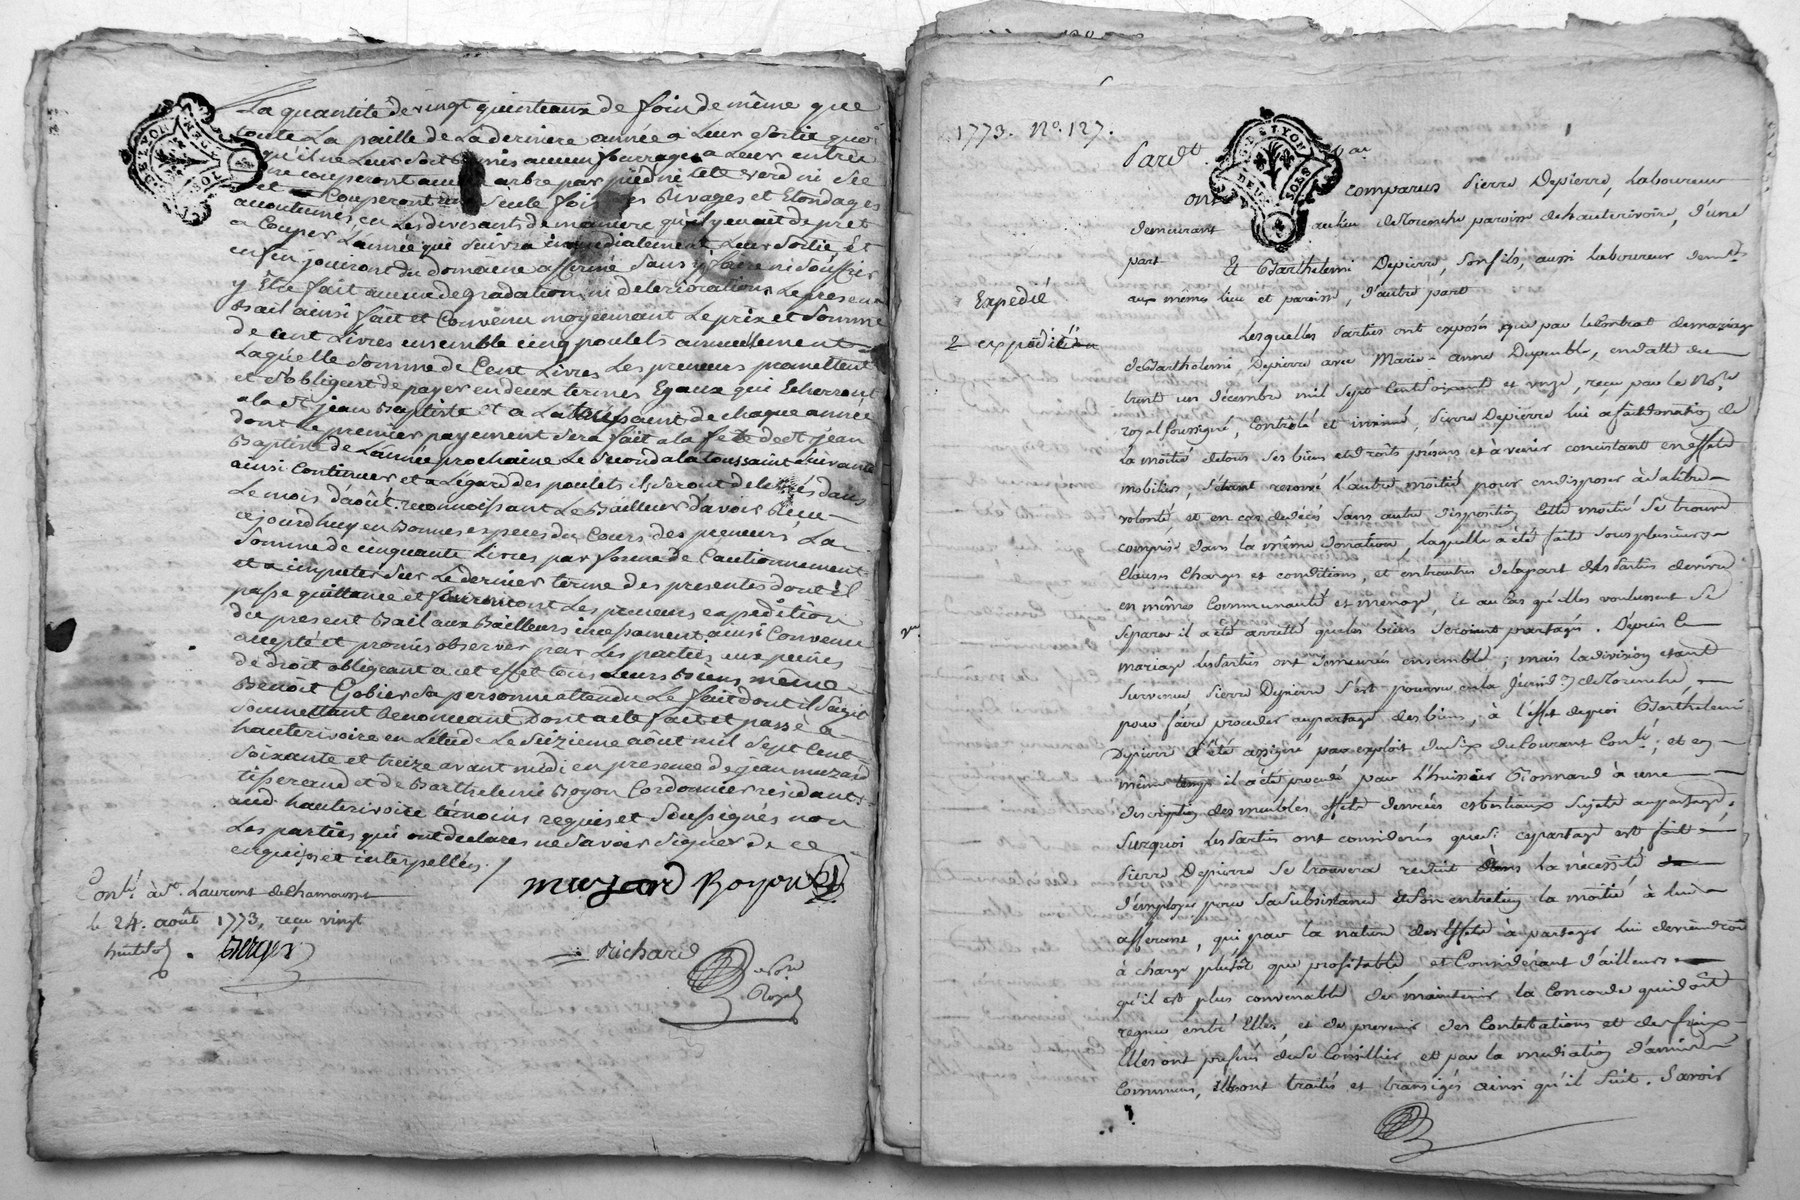 La quantité de vingt quinteaux de foin de même que
toute La paille de La derniere année a Leur Sortie quoi
qu'il ne Leur soit aucun fourrages a Leur entrée
ne couperont aucun arbre par pied ni tête verd ni sec
et Couperont une Seule fois Les Rivages et Etondages
acoutumés en Les divisants de maniere qu'il y en ait de pret
a Couper L'année qui Suivra immédiatement Leur Sortie et
enfin jouiront du domaine affermé Sans y faire ni Souffrir
y Etre fait aucune degradations ni deteriorations Le present
Bail ainsi fait et Convenu moyennant Le prix et Somme
de cent Livres ensemble cinq poulets annuellement
Laquelle Somme de Cent Livres Les preneurs promettent
et S'obligent de payer en deux termes Egaux qui Echerront
a la St jean Baptiste et a La toussaint de chaque année
dont Le premier payement Sera fait a la fete de St jean
Baptiste de L'année prochaine Le Second a la toussaint Suivante
ainsi Continuer et a L'égard des poulets ils Seront delivrés dans
Le mois d'août. reconnoissant Le Bailleur d'avoir Reçu
cejourdhuy en Bonnes especes du Cours des preneurs La
Somme de cinquante Livres par forme de Cautionnement
et a imputer Sur Le dernier terme des presentes dont il
passe quittance et fourniront Les preneurs expédition
du present Bail aux Bailleurs incessament ainsi Convenu
accepté et promis observer par Les parties aux peines
de droit obligeant a cet effet tous Leurs Biens même
Benoît Gobier Sa personne attendu Le fait dont il s'agit
Soumettant Renonceant Dont acte fait et passé a
hauterivoire en Letude Le Seizieme août mil Sept Cent
Soixante et treize avant midi en presence de jean muzard
tisserand et de Barthelemi Boyon Cordonnier residants
aud. hauterivoire témoins requis et Soussignés non
Les parties qui ont declares ne Savoir Signer de ce
enquis et interpellées /
muzard Boyon
Conlé. à St. Laurent de Chamousset
le 24. août 1773, reçu vingt
huit sols. Berger
Richard
Nore
Royal
1773. No. 127.
Expedié
2e expedition
Pardt
ont comparus Pierre Depierre, Laboureur
demeurant au lieu de paroisse de hauterivoire, d'une
part Et Barthelemi Depierre, Son fils, aussi Laboureur demt
aux mêmes lieu et paroisse, d'autre part
Lesquelles Parties ont exposés que par le Contrat de mariage
de Barthelemi Depierre avec Marie-anne Dupuble, en datte du
trent un décembre mil Sept Cent Soixante et onze, reçu par le Nore
royal Soussigné, Contrôlé et insinué, Pierre Depierre lui a fait donation de
la moitié de tous Ses biens et droits présens et à venir consistant en effets
mobiliers, S'étant reservé l'autre moitié pour en disposer à Sa libre
volonté et en cas de décès Sans autre disposition Cette moitié Se trouve
comprise dans la même donation, Laquelle a été faite Sous plusieurs
Clauses Charges et conditions, et entr'autres de la part des Parties de vivre
en mêmes Communauté et menage, & au Cas qu'elles voulussent Se
Separer il a été arretté que les biens Seroient partagés. Depuis Ce
mariage Les Parties ont demeurés ensemble; mais la division etant
Survenue Pierre Depierre S'est pourvu en la Jurisdon de
pour faire proceder au partage des biens, à l'effet de quoi Barthelemi
Depierre a été assigné par exploit du Six du Courant Conlé; et en
même tems il a été procedé par l'huissier Bonnard à une
description des meubles effets denrées et bestiaux Sujets au partage.
Surquoi Les Parties ont considerés que Si ce partage est fait
Pierre Depierre Se trouvera reduit dans la necessité
d'employer pour Sa Subsistance et Son entretien la moitié à lui
afferant, qui par la nature des Effets à partager lui deviendront
à charge plutôt que profitable, et Considérant d'ailleurs
qu'il est plus convenable de maintenir la Concorde qui doit
regner entre Elles et de prevenir des Contestations et des fraix
Elles ont preferé de Se Concillier, et par la mediation d'amis
Communs, Elles ont traités et transigés ainsi qu'il Suit. Savoir